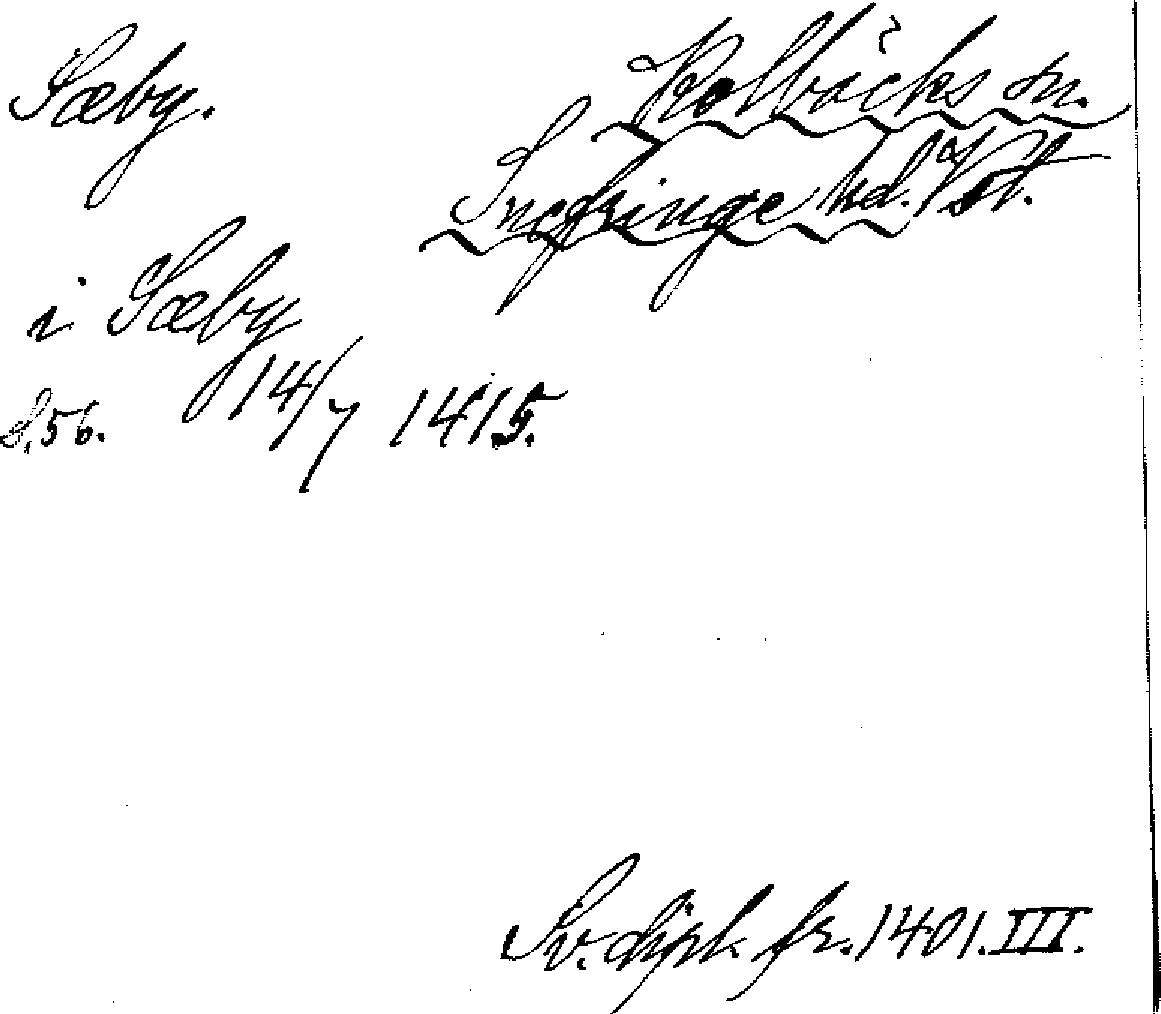 Sæby.
Kolbäcks sn.
Snefringe hd. Vst.
i Sæby
14/7 1415.
S. 56.
Sv. dipl. fr. 1401. III.